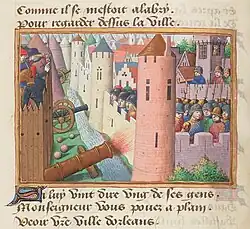 Comme il se mestoit a laboy.
Pour regarder dessus la ville.
Ung luy vint dire ung de ses gens.
Monseigneur vous pouez a plain
Veoir vre ville dorleans.